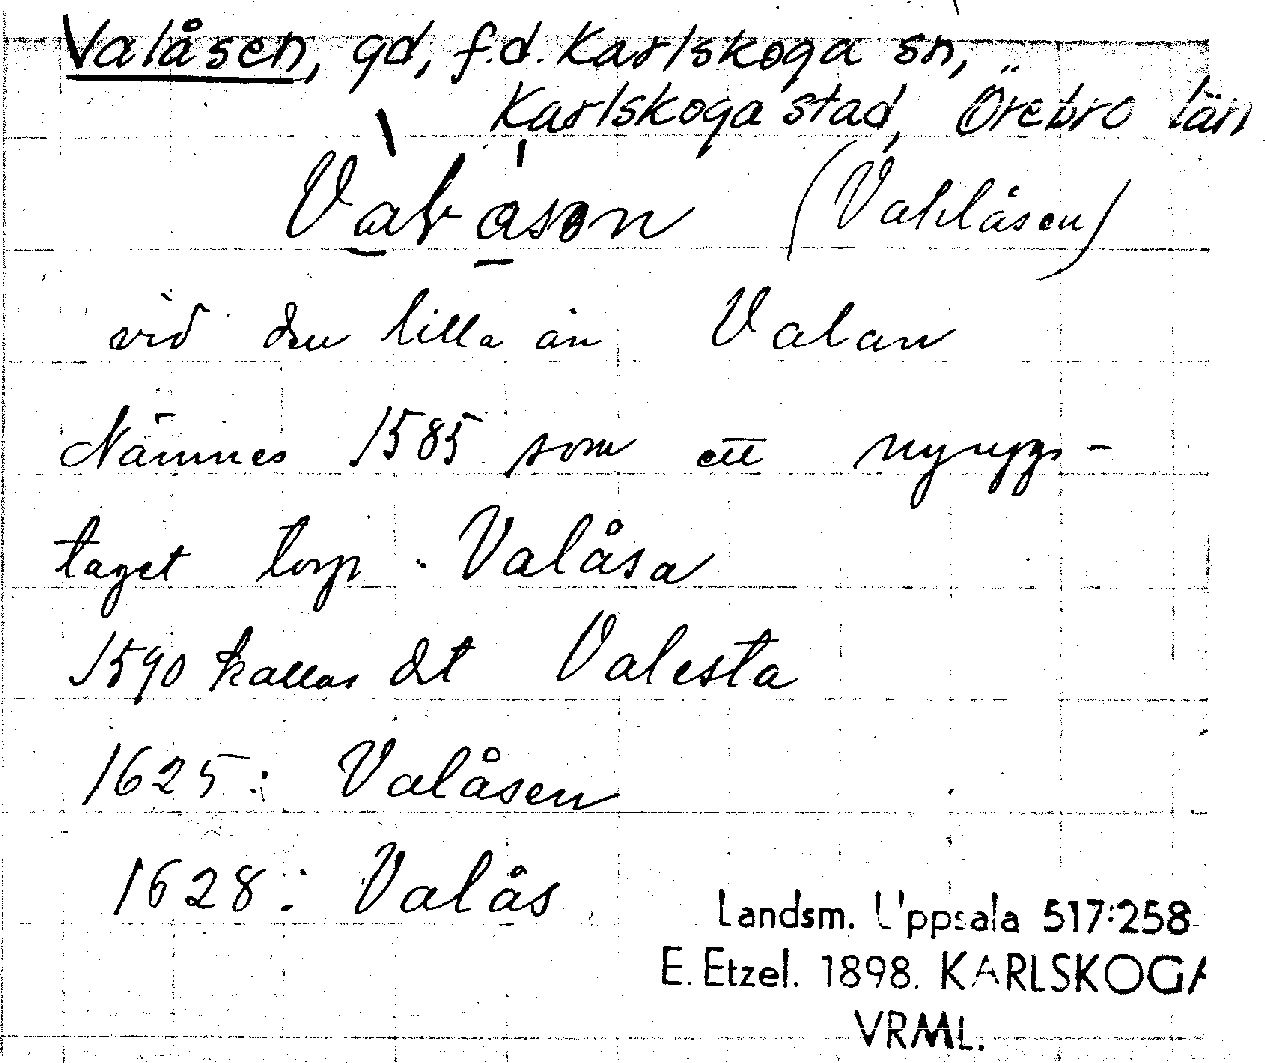 Valåsen, gd, f.d. Karlskoga sn,
Karlskoga stad, Örebro län
(Vahlåsen)
vid den lilla ån Valan
Nämnes 1585 som ett nyupp-
taget torp. Valåsa
1590 kallas det Valesta
1625: Valåsen
1628: Valås
Landsm. Uppsala 517:258
E. Etzel. 1898. KARLSKOGA
VRML.